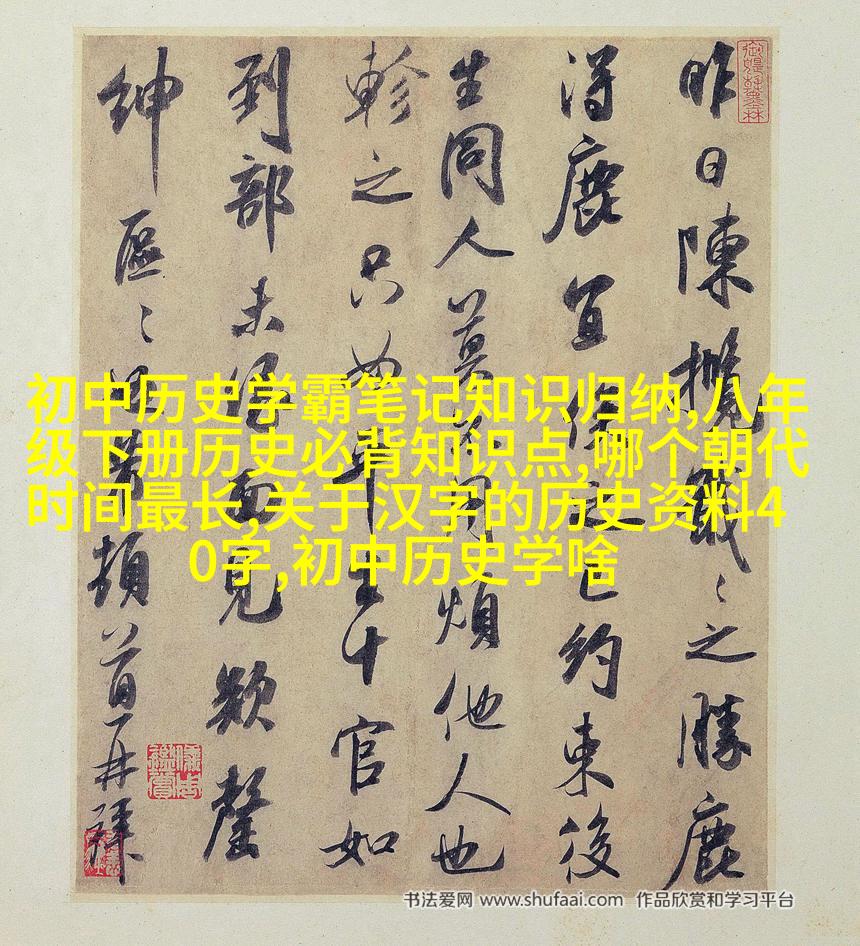 初中历史学霸笔记知识归纳,八年
级下册历史必背知识点,哪个朝代
时间最长,关于汉字的历史资料4
0字,初中历史学啥
昨日陳攬戢〻之勝鹿
得鹿宜已約束後
生同人莫煩他人也
軫之只如平生十官如
到部未得面見欵罄
紳區〻頓首再拜
书法爱网 www.shufaai.com 作品欣赏和学习平台